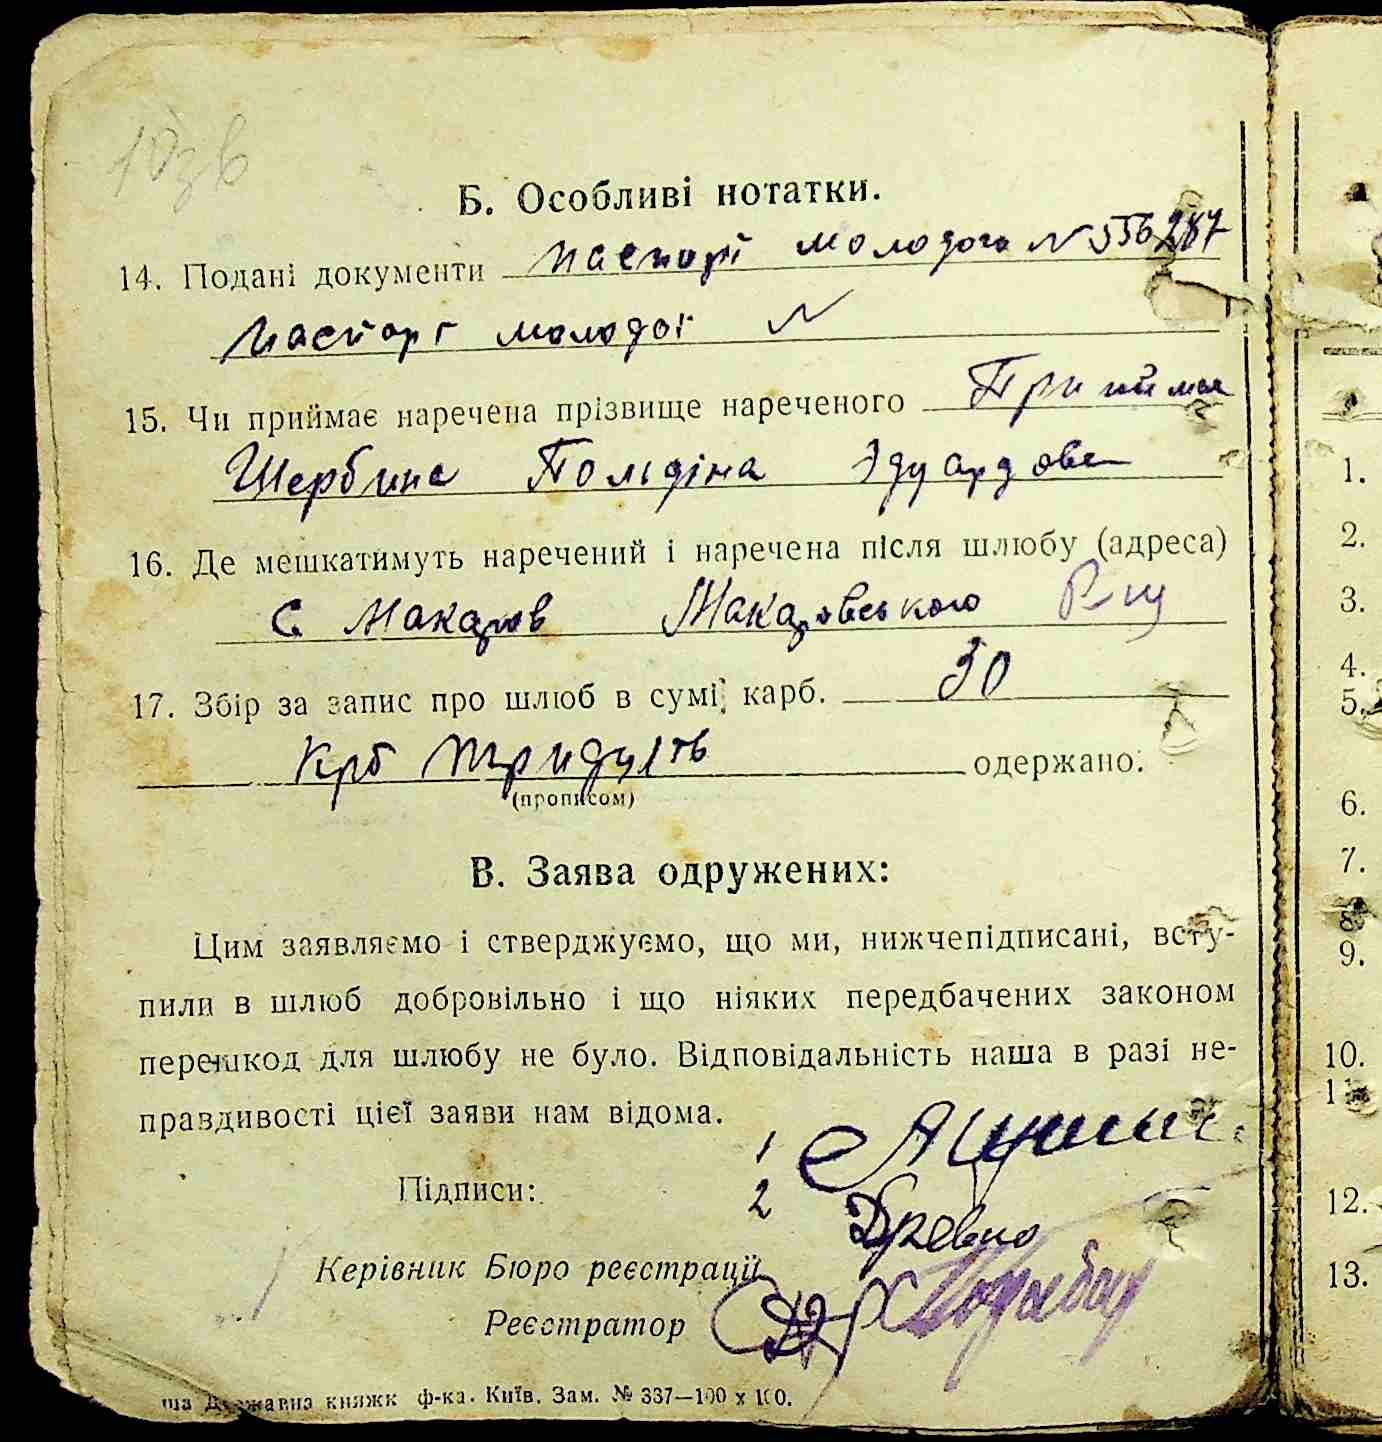 Б. Особливі нотатки.
14. Подані документи паспорт молодого N 556287
паспорт молодої N
15. Чи приймає наречена прізвище нареченого Приима
Щербина Польдіна Эдуардовн
16. Де мешкатимуть наречений і наречена після шлюбу (адреса)
с. Макарів Макарівського Р-ну
17. Збір за запис про шлюб в сумі, карб. 30
Крб тридцять одержано.
(прописом)
В. Заява одружених:
Цим заявляємо і стверджуємо, що ми, нижчепідписані, всту-
пили в шлюб добровільно і що ніяких передбачених законом
перешкод для шлюбу не було. Відповідальність наша в разі не-
правдивості цієї заяви нам відома.
Підписи: 1
2 Древно
Керівник Бюро реєстрації
Реєстратор
ша Державна книжк ф-ка. Київ. Зам. № 337—100 х 100.
1.
2.
3.
4.
5.
6.
7.
8
9.
10.
11
12.
13.